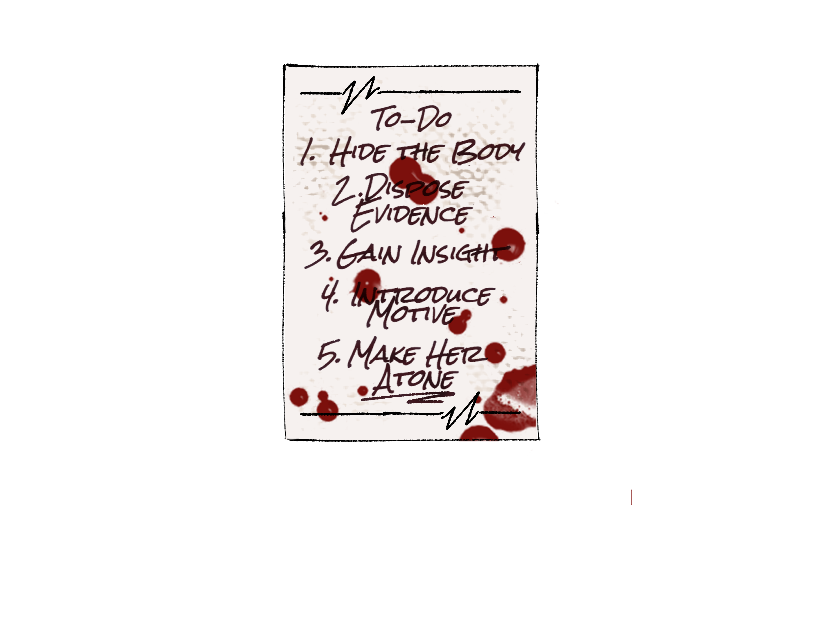 To-Do
1. Hide the Body
2. Dispose
Evidence
3. Gain Insight
4. Introduce
Motive
5. Make Her
Atone